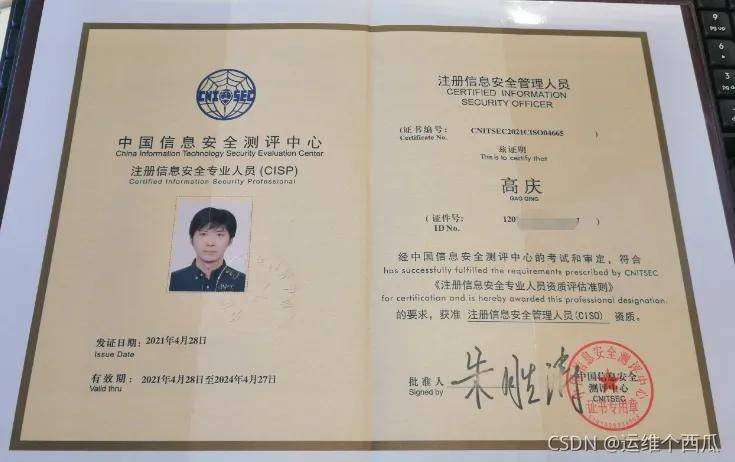 CNITSEC
中国信息安全测评中心
China Information Technology Security Evaluation Center
注册信息安全专业人员(CISP)
Certified Information Security Professional
发证日期:2021年4月28日
Issue Date
有效期:2021年4月28日至2024年4月27日
Valid thru
注册信息安全管理人员
CERTIFIED INFORMATION
SECURITY OFFICER
(证书编号: CNITSEC2021CISO04665 )
Certificate No.
兹证明
This is to certify that
高庆
GAO QING
(证件号: 120
ID No.
经中国信息安全测评中心的考试和审定,符合
has successfully fulfilled the requirements prescribed by CNITSEC
《注册信息安全专业人员资质评估准则》
for certification and is hereby awarded this professional designation.
的要求,获准 注册信息安全管理人员(CISO) 资质。
批准人
Signed by
中国信息安全
测评中心
CNITSEC
证书专用章
CSDN @运维个西瓜
pg up
pg dn
9
6